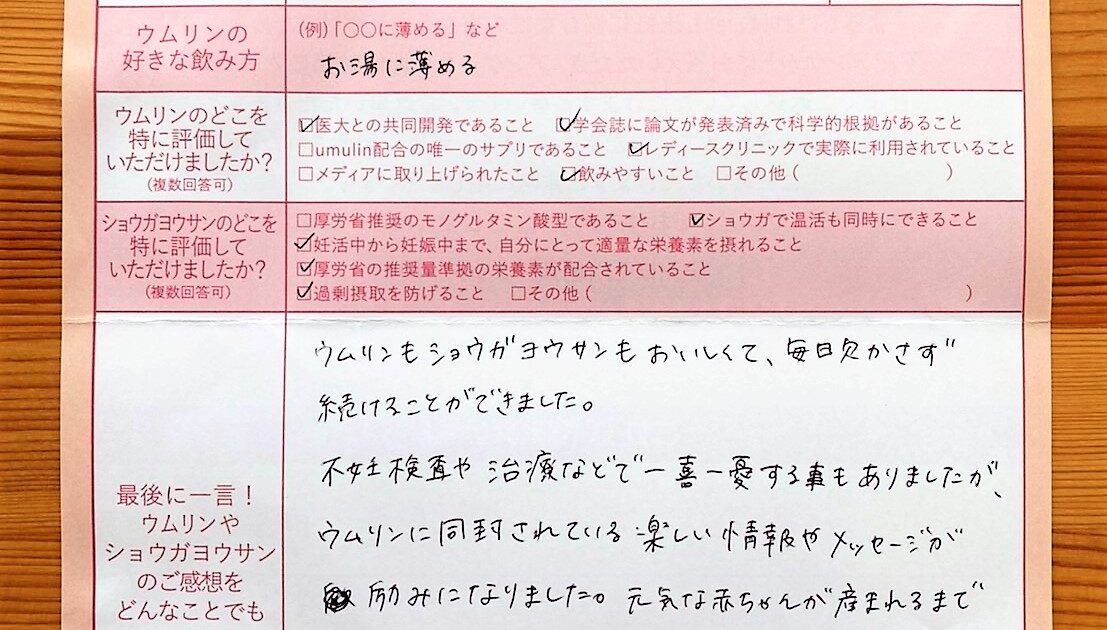 ウムリンの
好きな飲み方
(例)「〇〇に薄める」など
お湯に薄める
ウムリンのどこを
特に評価して
いただけましたか?
(複数回答可)
☑医大との共同開発であること ☑学会誌に論文が発表済みで科学的根拠があること
□umulin配合の唯一のサプリであること ☑レディースクリニックで実際に利用されていること
□メディアに取り上げられたこと ☑飲みやすいこと □その他( )
ショウガヨウサンのどこを
特に評価して
いただけましたか?
(複数回答可)
□厚労省推奨のモノグルタミン酸型であること ☑ショウガで温活も同時にできること
☑妊活中から妊娠中まで、自分にとって適量な栄養素を摂れること
☑厚労省の推奨量準拠の栄養素が配合されていること
☑過剰摂取を防げること □その他( )
最後に一言!
ウムリンや
ショウガヨウサン
のご感想を
どんなことでも
ウムリンもショウガヨウサンもおいしくて、毎日欠かさず
続けることができました。
不妊検査や治療などで一喜一憂する事もありましたが、
ウムリンに同封されている楽しい情報やメッセージが
励みになりました。元気な赤ちゃんが産まれるまで